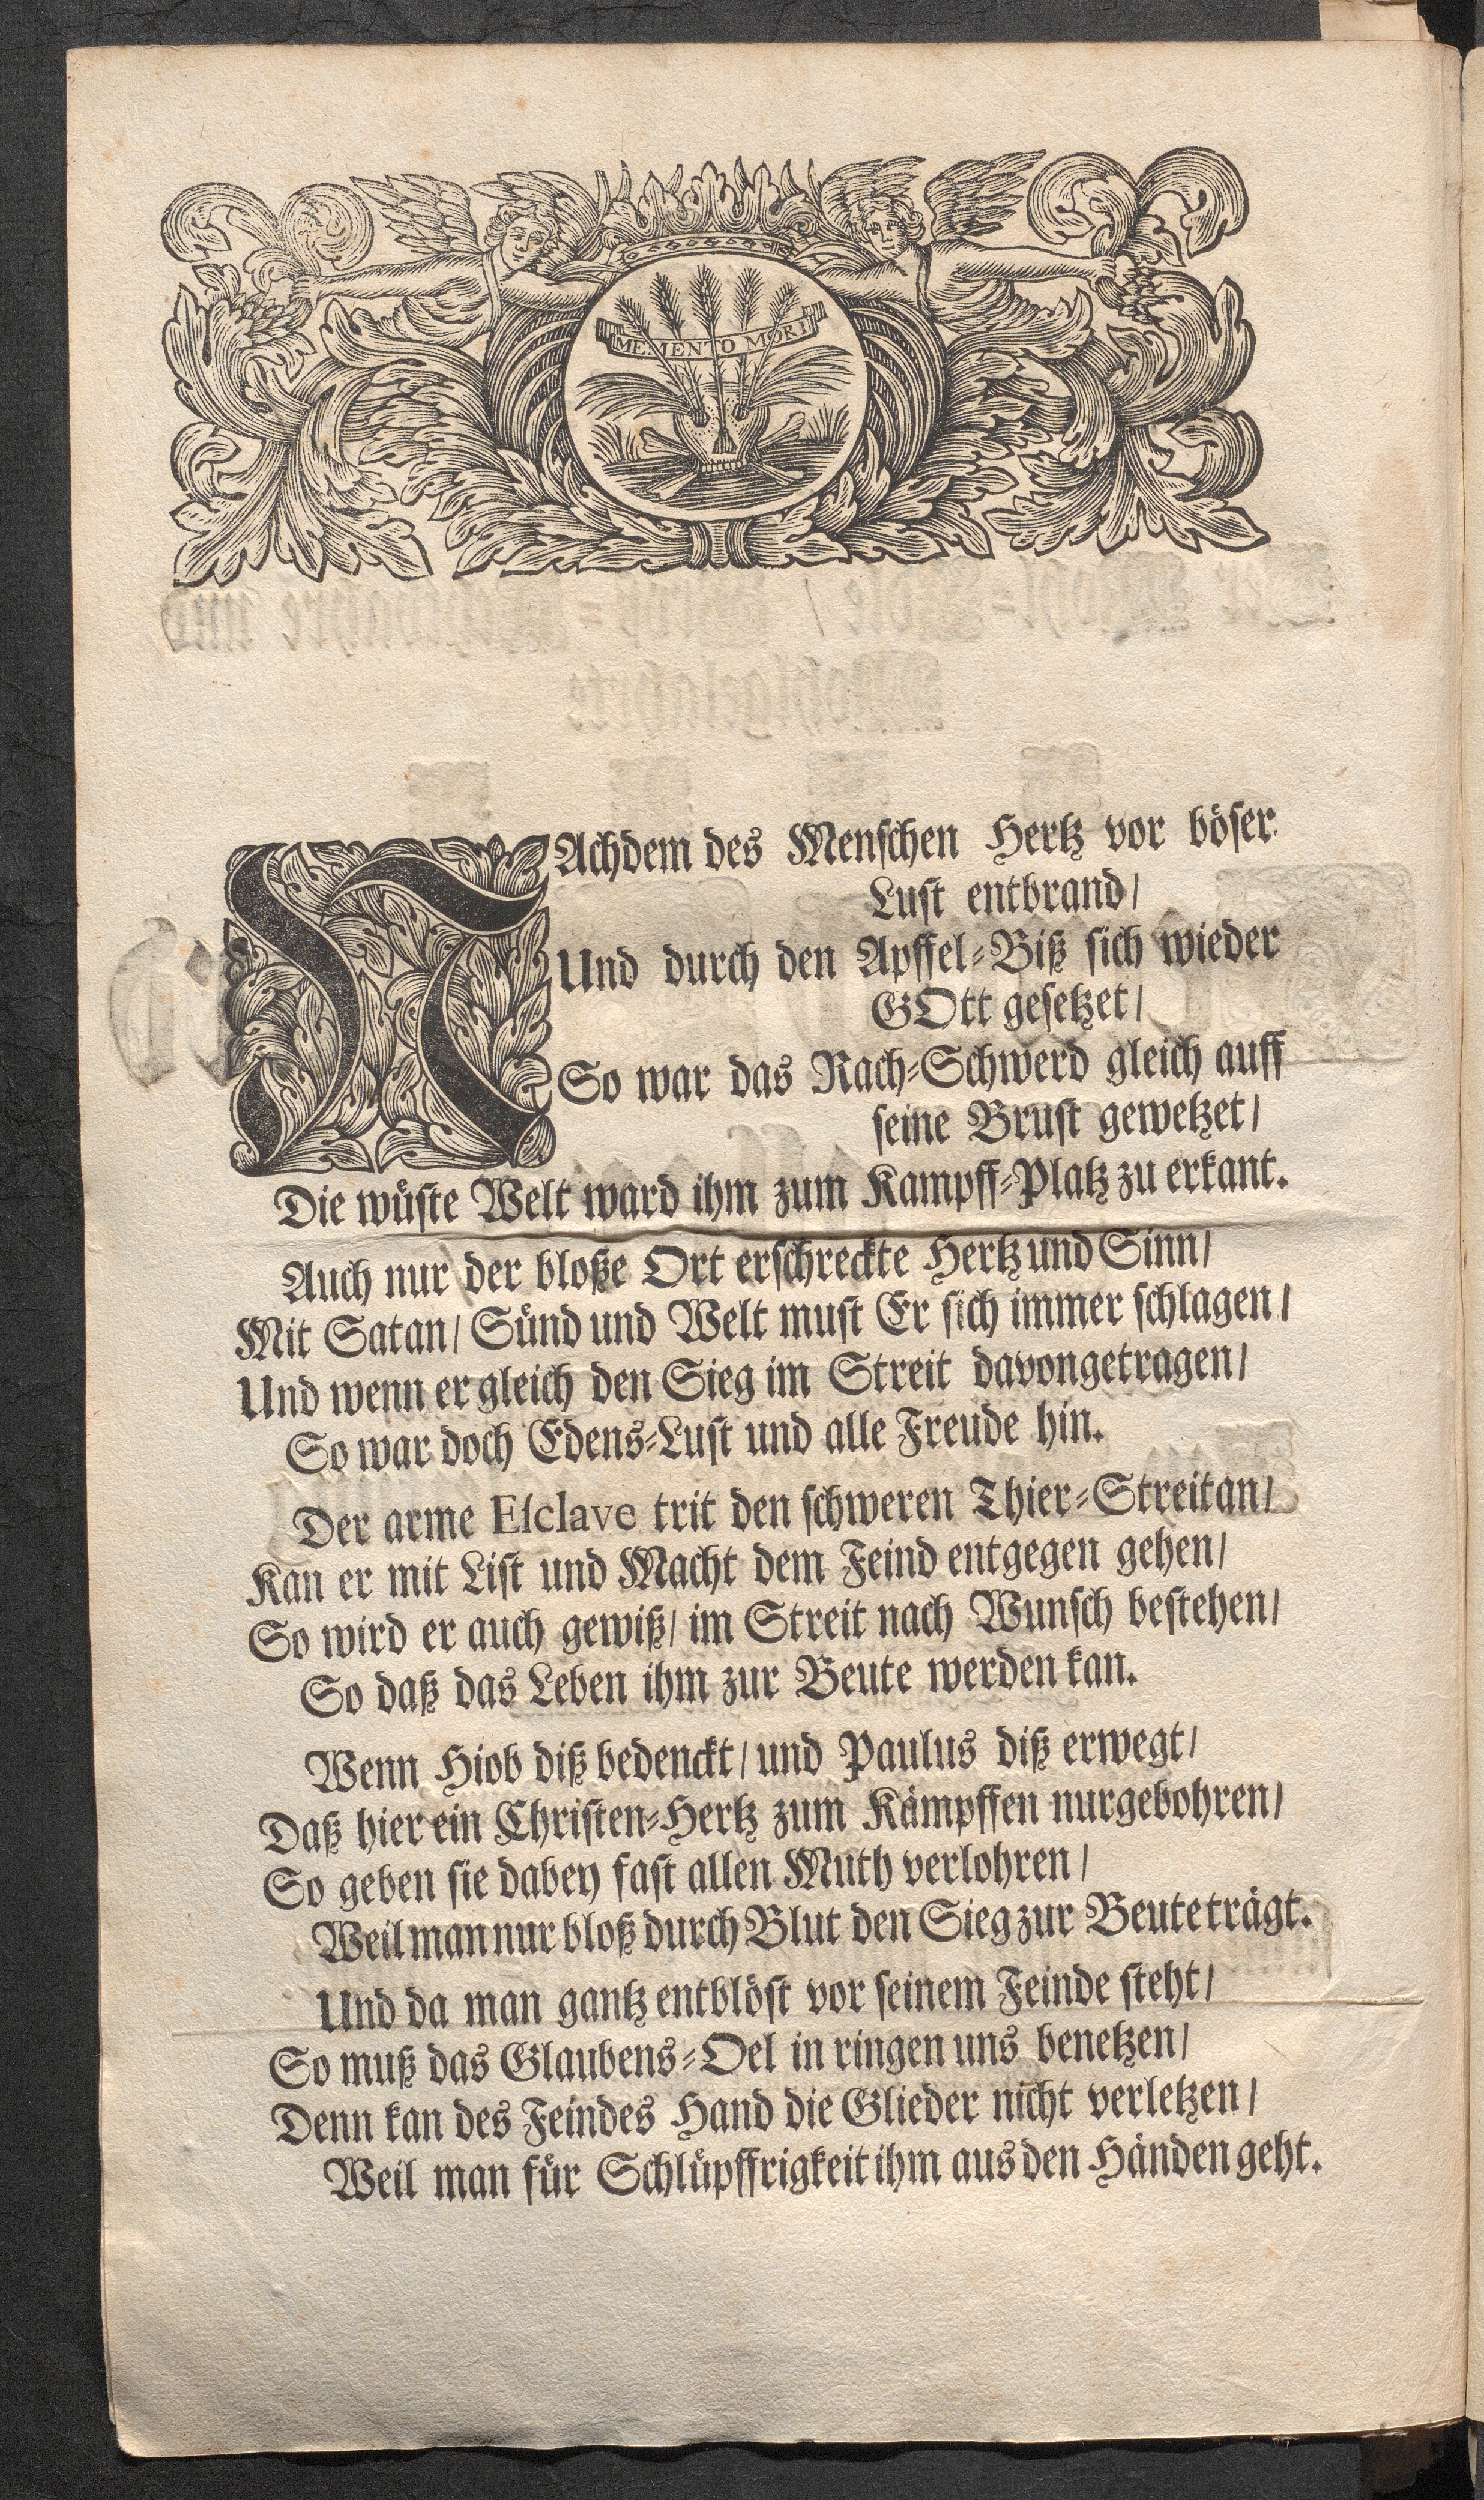 MEMENTO MORI
NAchdem des Menschen Hertz vor böser
Lust entbrand/
Und durch den Apffel-Biß sich wieder
GOtt gesetzet/
So war das Rach-Schwerd gleich auff
seine Brust gewetzet/
Die wüste Welt ward ihm zum Kampff-Platz zu erkant.
Auch nur der bloße Ort erschreckte Hertz und Sinn/
Mit Satan/ Sünd und Welt must Er sich immer schlagen/
Und wenn er gleich den Sieg im Streit davongetragen/
So war doch Edens-Lust und alle Freude hin.
Der arme Esclave trit den schweren Thier-Streit an/
Kan er mit List und Macht dem Feind entgegen gehen/
So wird er auch gewiß/ im Streit nach Wunsch bestehen/
So daß das Leben ihm zur Beute werden kan.
Wenn Hiob diß bedenckt/ und Paulus diß erwegt/
Daß hier ein Christen-Hertz zum Kämpffen nur gebohren/
So geben sie dabey fast allen Muth verlohren/
Weil man nur bloß durch Blut den Sieg zur Beute trägt.
Und da man gantz entblöst vor seinem Feinde steht/
So muß das Glaubens-Oel in ringen uns benetzen/
Denn kan des Feindes Hand die Glieder nicht verletzen/
Weil man für Schlüpffrigkeit ihm aus den Händen geht.